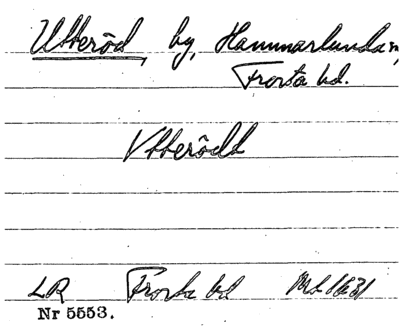 Utteröd, by, Hammarlunda sn,
Frosta hd.
Vtterödt
LR Frosta hd Ml 1631
Nr 5553.